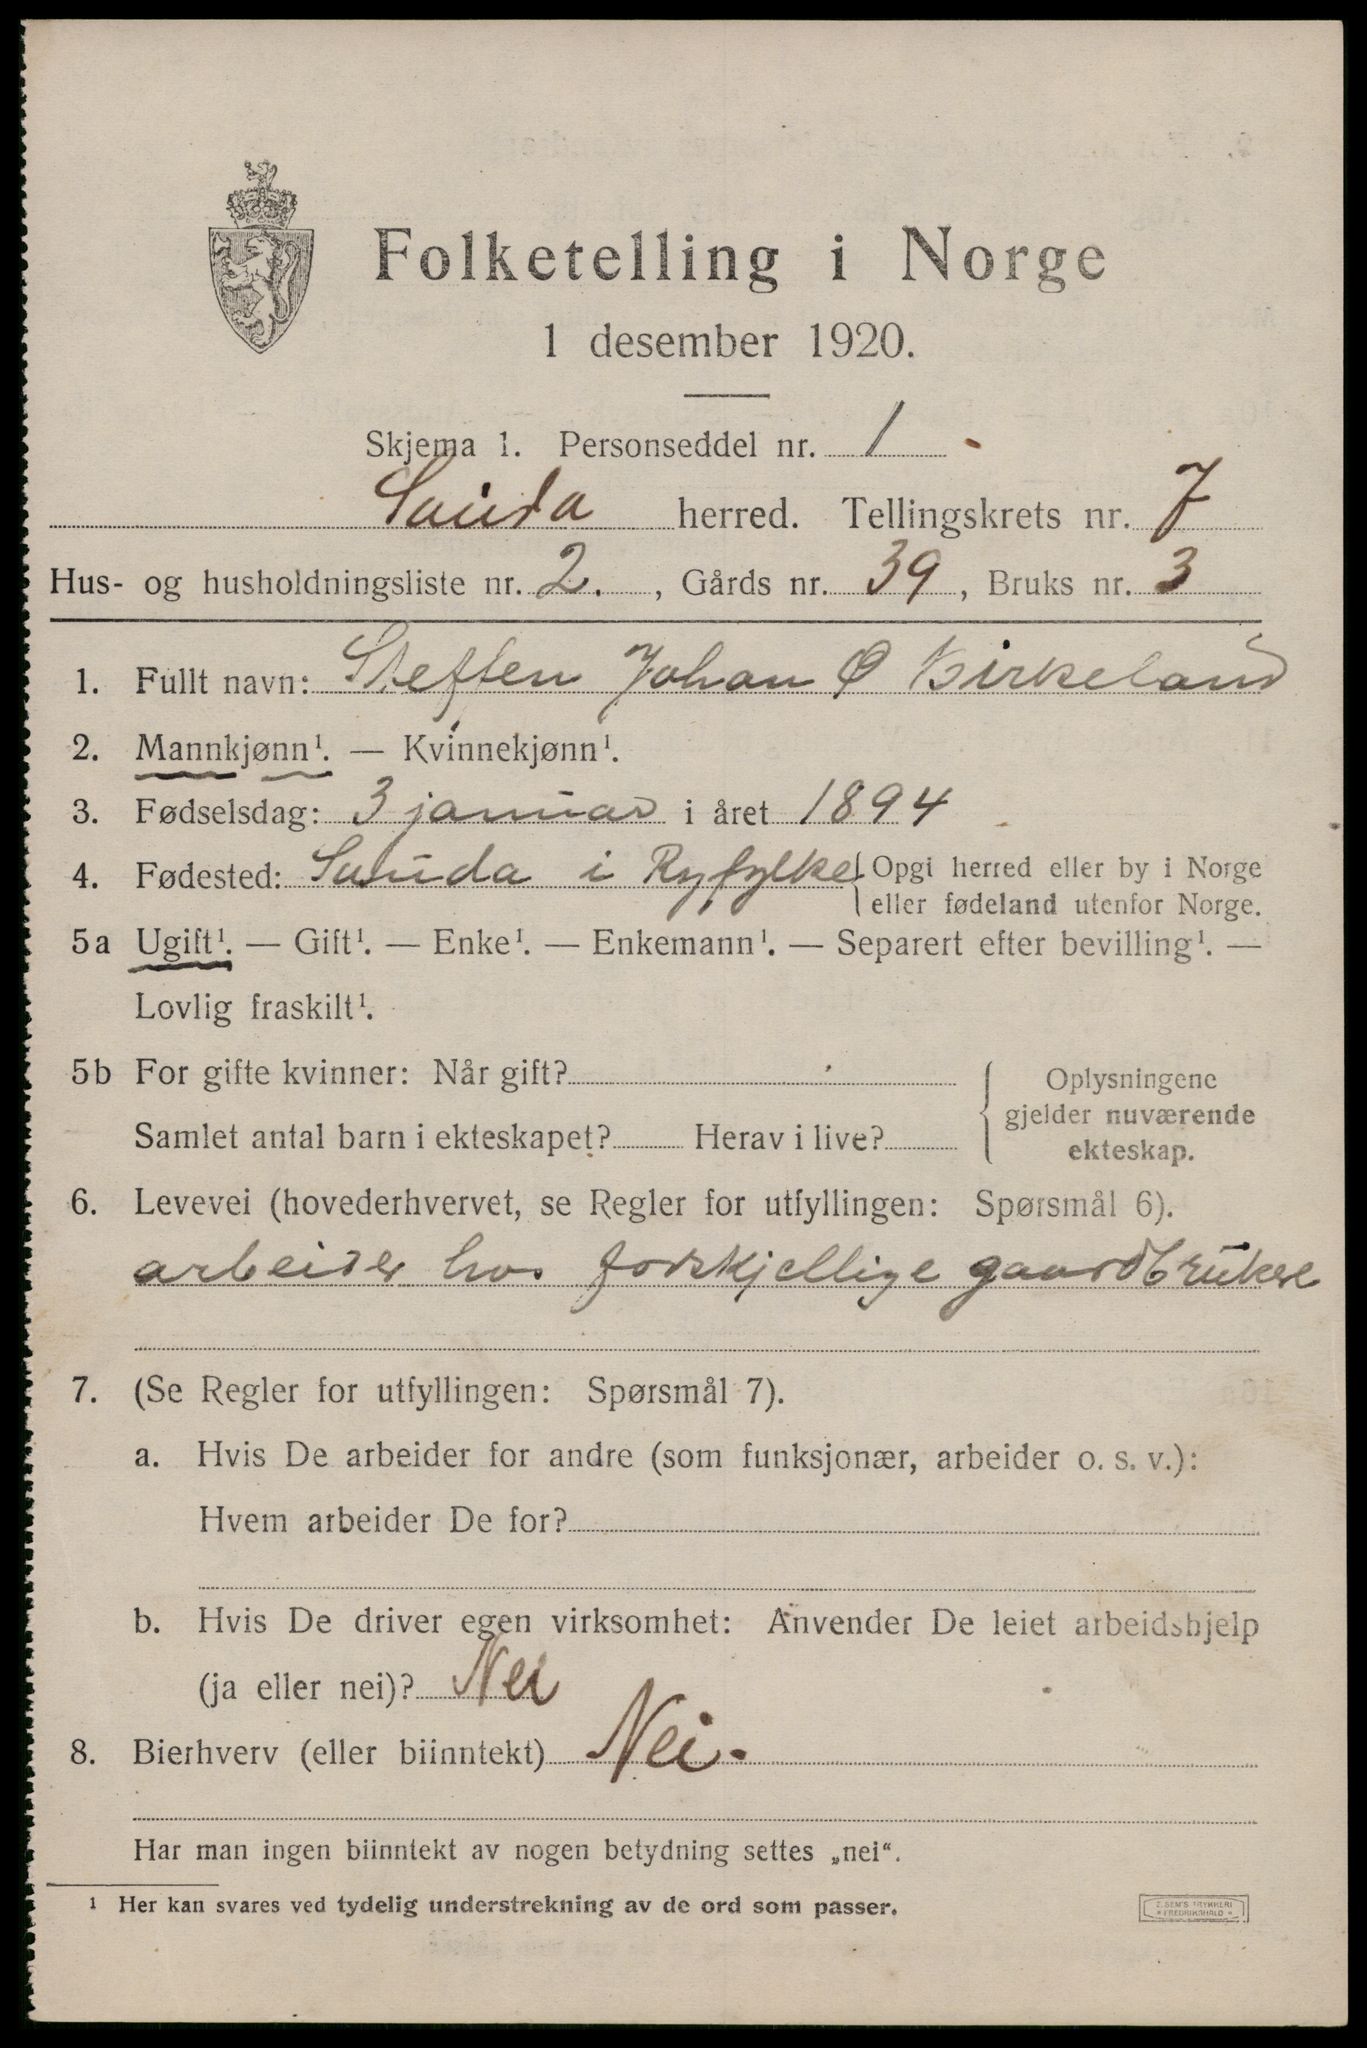 Folketelling i Norge
1 desember 1920.
Skjema 1. Personseddel nr. 1
Sauda herred. Tellingskrets nr. 7
Hus- og husholdningsliste nr. 2. , Gårds nr. 39, Bruks nr. 3
1. Fullt navn: Steffen Johan Ø Birkeland
2. Mannkjønn¹. — Kvinnekjønn¹.
3. Fødselsdag: 3 januar i året 1894
4. Fødested: Sauda i Ryfylke { Opgi herred eller by i Norge
eller fødeland utenfor Norge.
5a Ugift¹. — Gift¹. — Enke¹. — Enkemann¹. — Separert efter bevilling¹. —
Lovlig fraskilt¹.
5b For gifte kvinner: Når gift?
Samlet antal barn i ekteskapet? Herav i live?
Oplysningene
gjelder nuværende
ekteskap.
6. Levevei (hovederhvervet, se Regler for utfyllingen: Spørsmål 6).
arbeider hos forskjellige gaardbrukere
7. (Se Regler for utfyllingen: Spørsmål 7).
a. Hvis De arbeider for andre (som funksjonær, arbeider o. s. v.):
Hvem arbeider De for?
b. Hvis De driver egen virksomhet: Anvender De leiet arbeidshjelp
(ja eller nei)? Nei
8. Bierhverv (eller biinntekt) Nei.
Har man ingen biinntekt av nogen betydning settes „nei“.
¹ Her kan svares ved tydelig understrekning av de ord som passer.
SEM'S TRYKKERI
FREDRIKSHALD